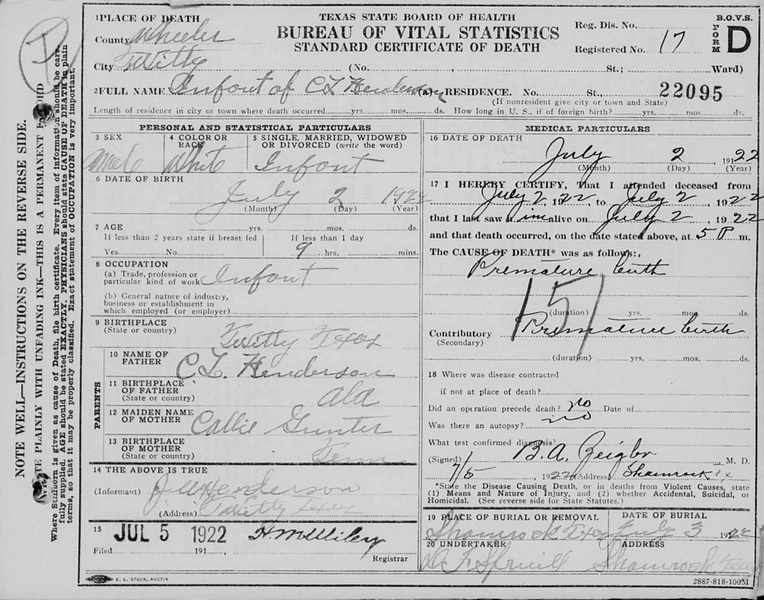 1 PLACE OF DEATH
County Wheeler
City Twitty
TEXAS STATE BOARD OF HEALTH
BUREAU OF VITAL STATISTICS
STANDARD CERTIFICATE OF DEATH
(No. St.; Ward)
Reg. Dis. No.
Registered No. 17
B.O.V.S.
FORM D
2 FULL NAME Infant of C L Henderson (a) RESIDENCE. No. St., 22095
(If nonresident give city or town and State)
Length of residence in city or town where death occurred yrs. mos. ds. How long in U. S., if of foreign birth? yrs. mos. ds.
PERSONAL AND STATISTICAL PARTICULARS
3 SEX
male
4 COLOR OR RACE
White
5 SINGLE, MARRIED, WIDOWED OR DIVORCED (write the word)
Infant
6 DATE OF BIRTH
July 2 1922
(Month) (Day) (Year)
7 AGE yrs. mos. ds.
If less than 2 years state if breast fed
Yes No
If less than 1 day
9 hrs. mins.
8 OCCUPATION
(a) Trade, profession or
particular kind of work Infant
(b) General nature of industry,
business or establishment in
which employed (or employer)
9 BIRTHPLACE
(State or country) Twitty Texas
PARENTS
10 NAME OF
FATHER C L Henderson
11 BIRTHPLACE
OF FATHER
(State or country) Ala
12 MAIDEN NAME
OF MOTHER Callie Gunter
13 BIRTHPLACE
OF MOTHER
(State or country) Tenn
14 THE ABOVE IS TRUE
(Informant) Henderson
(Address) Twitty Texas
15
Filed JUL 5 1922 191
Registrar
MEDICAL PARTICULARS
16 DATE OF DEATH
July 2 1922
(Month) (Day) (Year)
17 I HEREBY CERTIFY, That I attended deceased from
July 2, 1922, to July 2, 1922
that I last saw him alive on July 2, 1922
and that death occurred, on the date stated above, at 5 P m.
The CAUSE OF DEATH* was as follows:
Premature birth
151
(duration) yrs. mos. ds.
Contributory Premature birth
(Secondary)
(duration) yrs. mos. ds.
18 Where was disease contracted
if not at place of death?
Did an operation precede death? no Date of
Was there an autopsy? no
What test confirmed diagnosis?
(Signed) B. A. Zeigler M. D.
7/5, 1922 (Address) Shamrock Tx
*State the Disease Causing Death, or in deaths from Violent Causes, state
(1) Means and Nature of Injury, and (2) whether Accidental, Suicidal, or
Homicidal. (See reverse side for State Statutes.)
19 PLACE OF BURIAL OR REMOVAL
Shamrock Texas
DATE OF BURIAL
July 3 1922
20 UNDERTAKER
Spruill
ADDRESS
Shamrock Texas
E. L. STECK, AUSTIN
2887-818-10051
NOTE WELL—INSTRUCTIONS ON THE REVERSE SIDE.
PLAINLY WITH UNFADING INK—THIS IS A PERMANENT RECORD
Where Stillborn is given as cause of Death, file birth certificate. Every item of information should be carefully supplied. AGE should be stated EXACTLY. PHYSICIANS should state CAUSE OF DEATH in plain terms, so that it may be properly classified. Exact statement of OCCUPATION is very important.